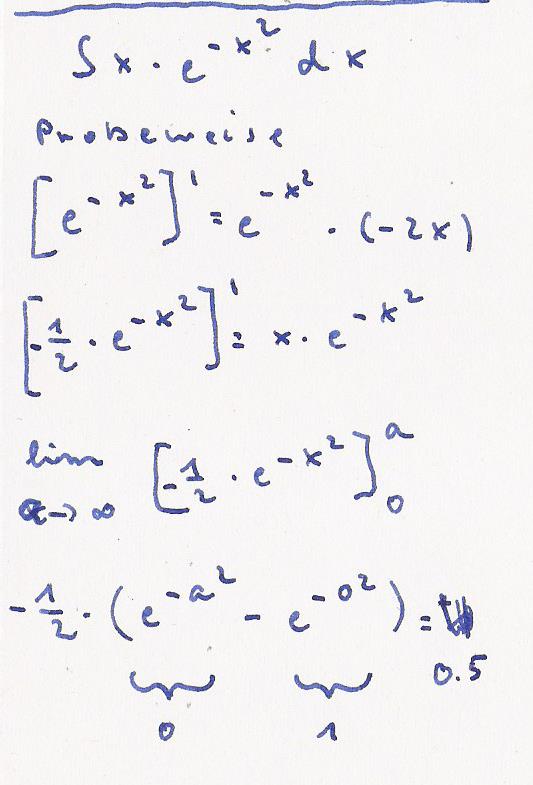 ∫ x · e^{-x^2} dx
Probeweise
[e^{-x^2}]' = e^{-x^2} · (-2x)
[-1/2 · e^{-x^2}]' = x · e^{-x^2}
lim a→∞ [-1/2 · e^{-x^2}]_0^a
-1/2 · (e^{-a^2} - e^{-0^2}) =
0.5
0 1